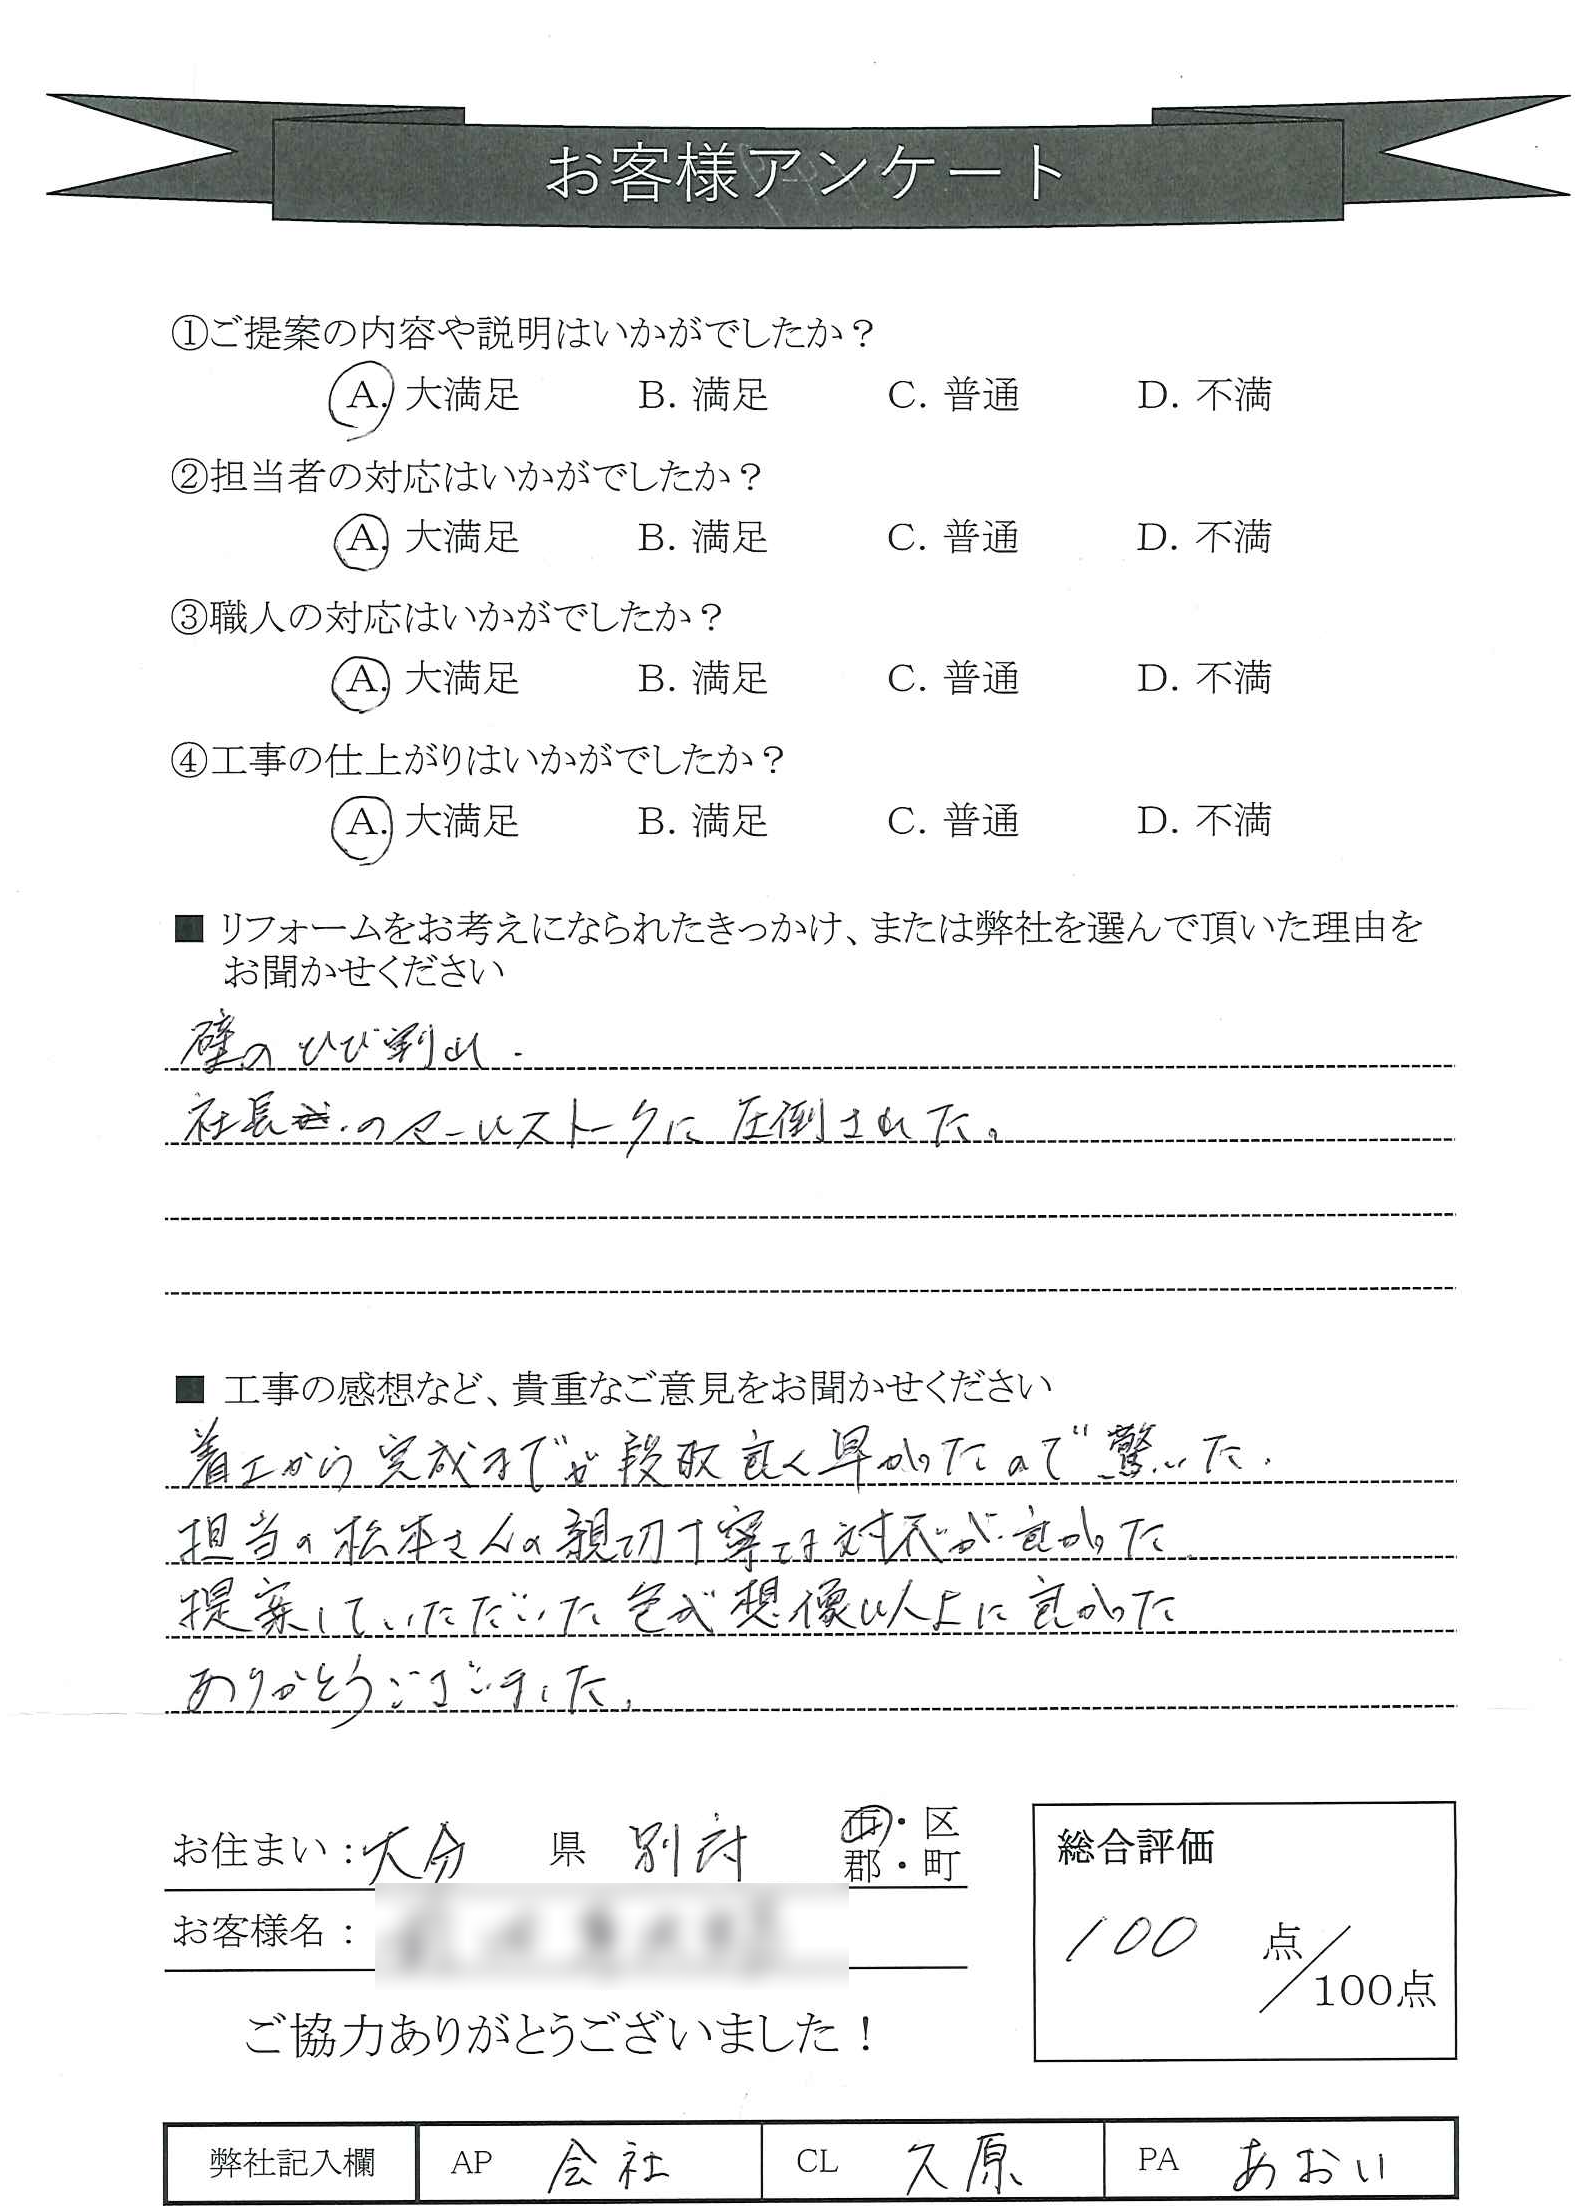 お客様アンケート
①ご提案の内容や説明はいかがでしたか？
A. 大満足 B. 満足 C. 普通 D. 不満
②担当者の対応はいかがでしたか？
A. 大満足 B. 満足 C. 普通 D. 不満
③職人の対応はいかがでしたか？
A. 大満足 B. 満足 C. 普通 D. 不満
④工事の仕上がりはいかがでしたか？
A. 大満足 B. 満足 C. 普通 D. 不満
■ リフォームをお考えになられたきっかけ、または弊社を選んで頂いた理由を
お聞かせください
壁のひび割れ.
社長のセールストークに圧倒された。
■ 工事の感想など、貴重なご意見をお聞かせください
着工から完成までが段取良く早かったので驚いた.
担当の松本さんの親切丁寧な対応が良かった
提案していただいた色が想像以上に良かった
ありがとうございました。
お住まい：大分 県 別府 市・区
郡・町
お客様名：
総合評価
100 点／100点
ご協力ありがとうございました！
弊社記入欄 AP 会社 CL 久原 PA あおい